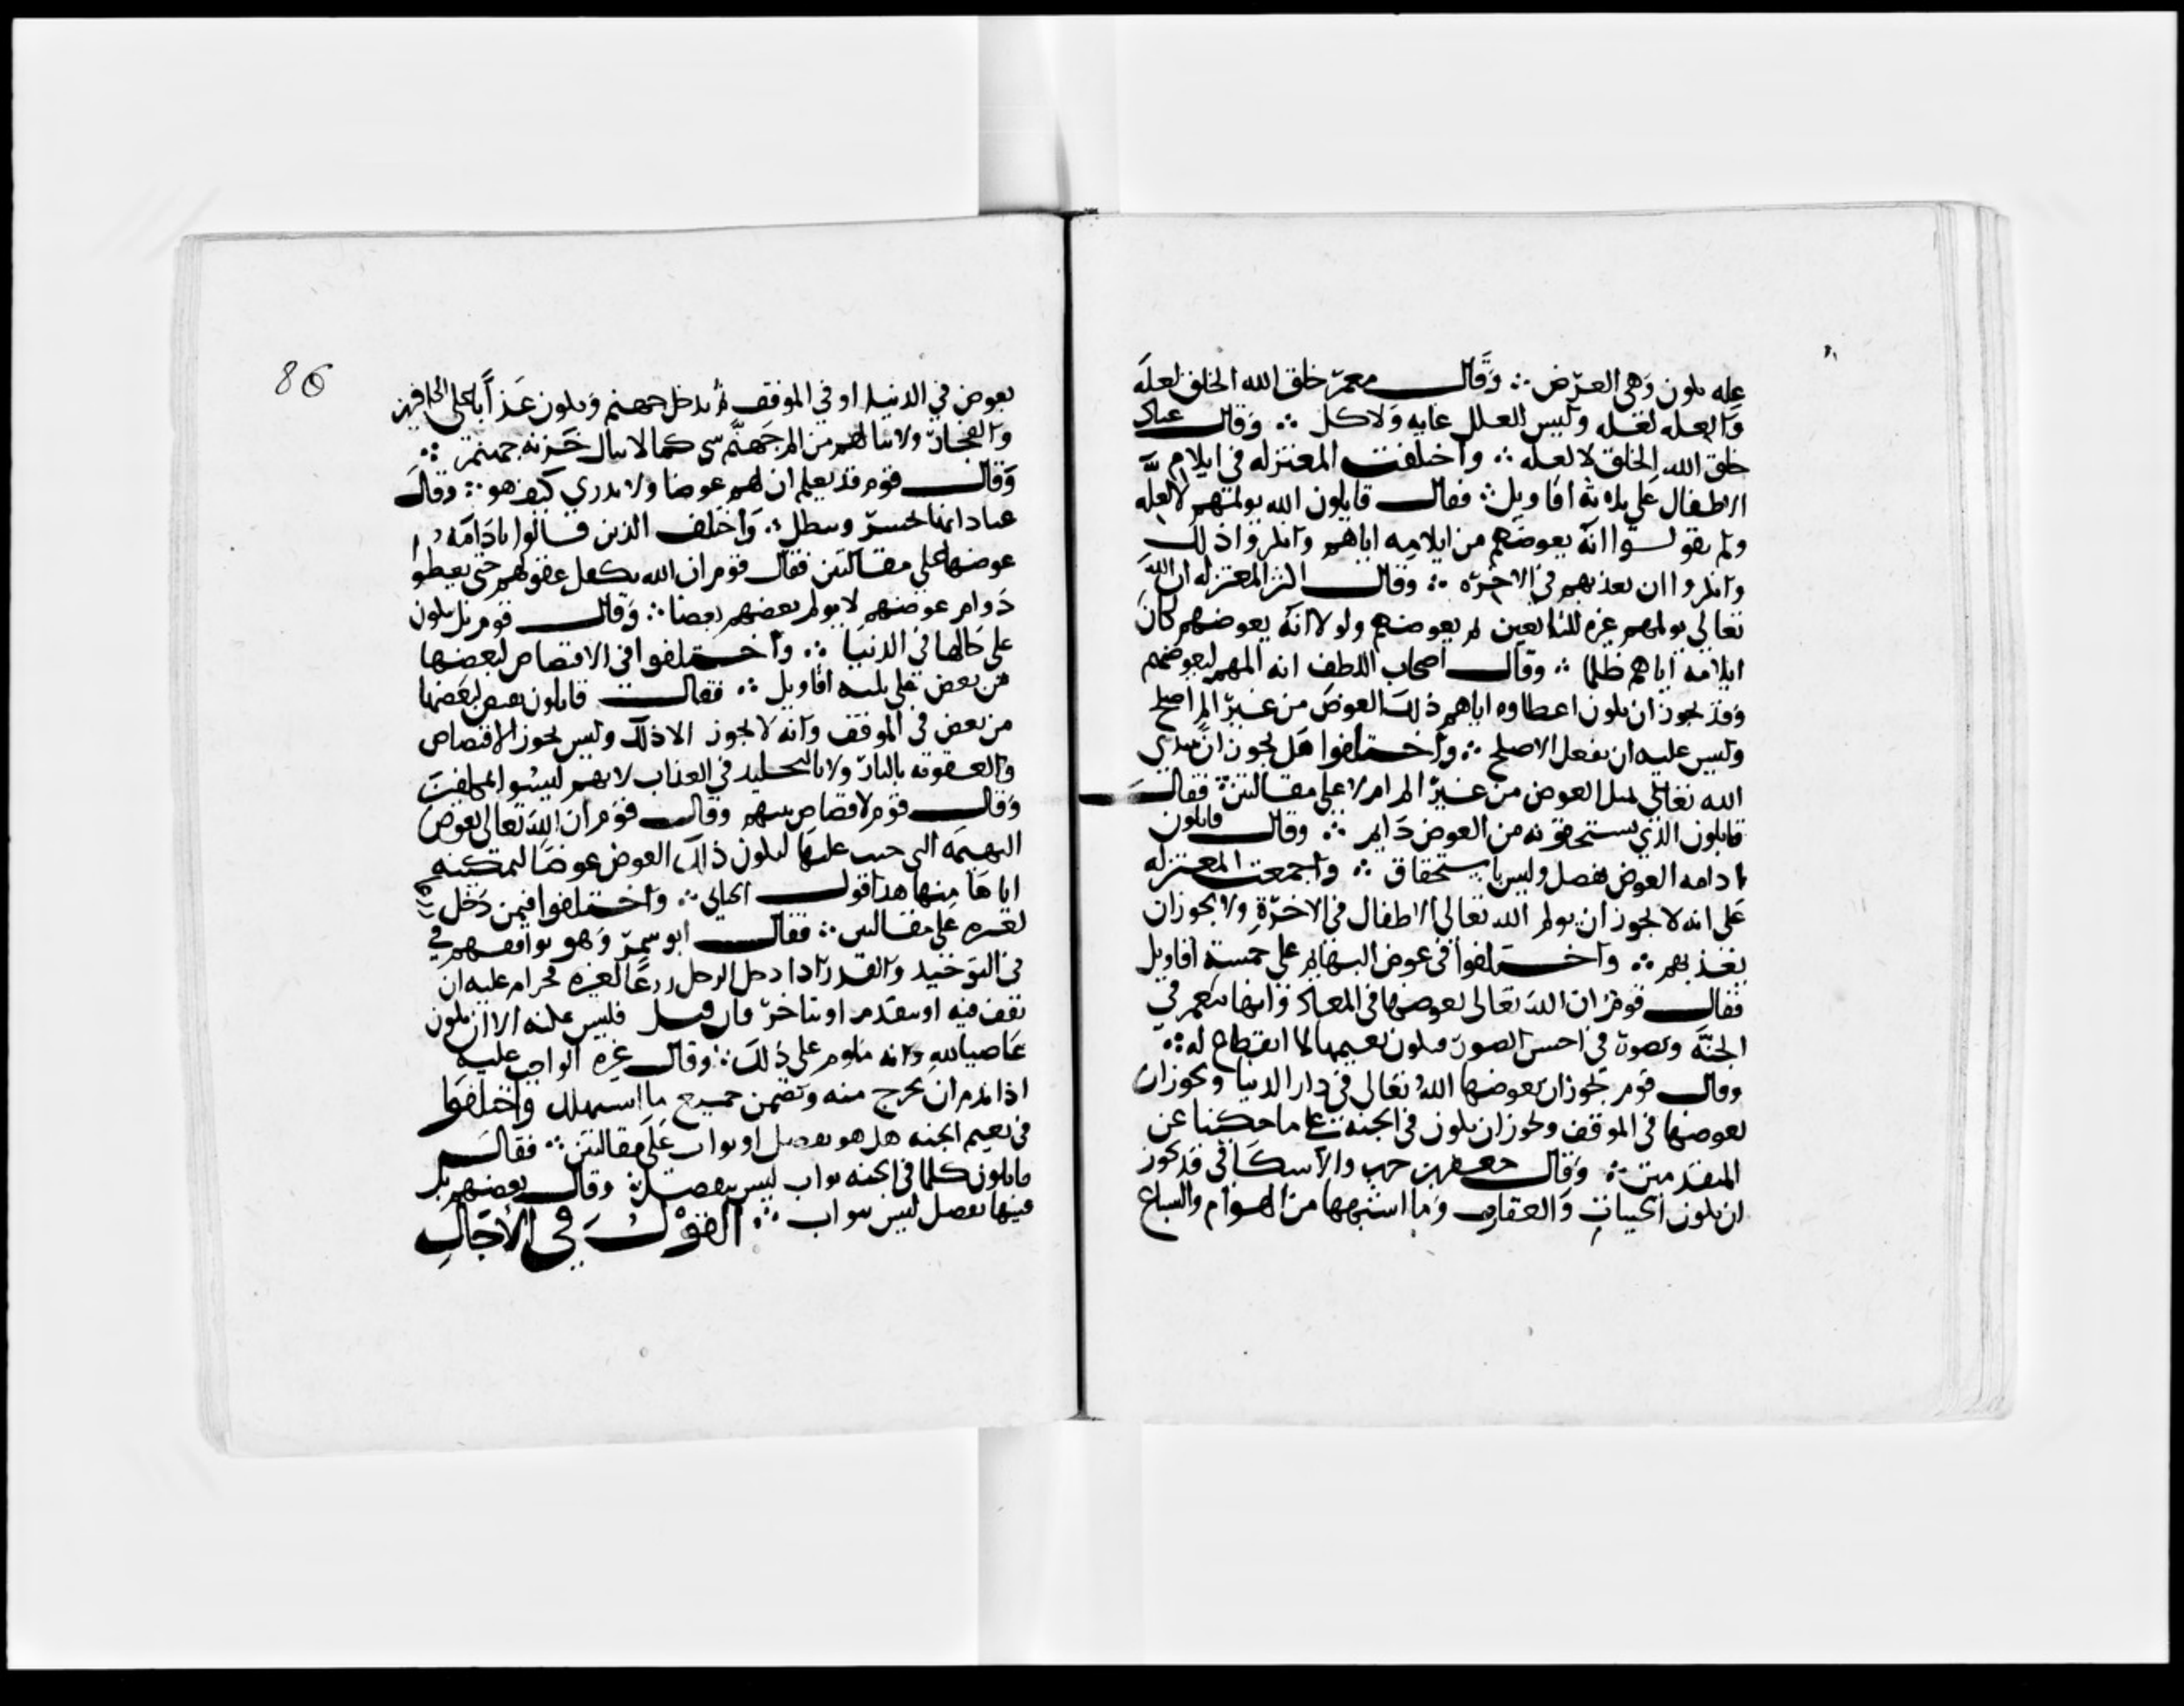 عله تكون وهي الغرض ∴ وقال معمر خلق الله الخلق لعله
والعله لعله وليس للعلل غايه ولا كل ∴ وقال عباد
خلق الله الخلق لا لعله ∴ واختلفت المعتزله في ايلام
الاطفال على ثلاثة اقاويل ∴ فقال قايلون الله يولمهم لا لعله
ولم يقولوا انه يعوضهم من ايلامه اياهم وانكروا ذلك
وانكروا ان يعذبهم في الاخره ∴ وقال اكثر المعتزله ان الله
تعالى يولمهم عبره للبالغين ثم يعوضهم ولولا انه يعوضهم كان
ايلامه اياهم ظلما ∴ وقال اصحاب اللطف انه المهم ليعوضهم
وقد يجوز ان يكون اعطاوه اياهم ذلك العوض من غير الم اصلح
وليس عليه ان يفعل الاصلح ∴ واختلفوا هل يجوز ان يبتدي
الله تعالى بمثل العوض من غير الم ام لا على مقالتين ∴ فقال
قايلون الذي يستحقونه من العوض دايم ∴ وقال قايلون
ادامه العوض تفضل وليس باستحقاق ∴ واجمعت المعتزله
على انه لا يجوز ان يولم الله تعالى الاطفال في الاخرة ولا يجوز ان
يعذبهم ∴ واختلفوا في عوض البهايم على خمسة اقاويل
فقال قوم ان الله تعالى يعوضها في المعاد وانها تنعم في
الجنة وتصور في احسن الصور فيكون نعيمها لا انقطاع له ∴
وقال قوم يجوز ان يعوضها الله تعالى في دار الدنيا ويجوز ان
يعوضها في الموقف ويجوز ان يكون في الجنة على ما حكينا عن
المتقدمين ∴ وقال جعفر بن حرب والاسكافي قد يجوز
ان تكون الحيات والعقارب وما اشبهها من الهوام والسباع
86
يعوض في الدنيا او في الموقف ثم يدخل جهنم ويكون عذابا على الكافرين
والفجار ولا ينالهم من الم جهنم شي كما لا ينال خزنه جهنم ∴
وقال قوم قد يعلم ان لهم عوضا ولا يدري كيف هو ∴ وقال
عباد انها تحشر وتبطل ∴ واختلف الذين قالوا بادامه
عوضها على مقالتين فقال قوم ان الله يكمل عقولهم حتى يعطوا
دوام عوضهم لا يولم بعضهم بعضا ∴ وقال قوم بل يكون
على حالها في الدنيا ∴ واختلفوا في الاقتصاص لبعضها
من بعض على ثلثه اقاويل ∴ فقال قايلون يقتص لبعضها
من بعض في الموقف وانه لا يجوز الا ذلك وليس يجوز الاقتصاص
والعقوبه بالنار ولا بالتخليد في العذاب لانهم ليسوا بمكلفين
وقال قوم لا قصاص بينهم وقال قوم ان الله تعالى يعوض
البهيمه التي جنى عليها ليكون ذلك العوض عوضا لتمكينه
اياها منها هذا قول الجبائي ∴ واختلفوا فيمن دخل
لغيره على مقالتين ∴ فقال ابو شمر وهو يوافقهم في
في التوحيد والقدر اذا دخل الرجل زرعا لغيره فحرام عليه ان
يقف فيه او يتقدم او يتاخر فان فليس عليه الا ان يكون
عاصيا لله وانه ملوم على ذلك ∴ وقال غيره الواجب عليه
اذا ندم ان يخرج منه ويضمن جميع ما استهلك واختلفوا
في نعيم الجنه هل هو تفضل او ثواب على مقالتين ∴ فقال
قايلون كلما في الجنه ثواب ليس بتفضل ∴ وقال بعضهم بل
فيها تفضل ليس بثواب ∴ القول في الآجال